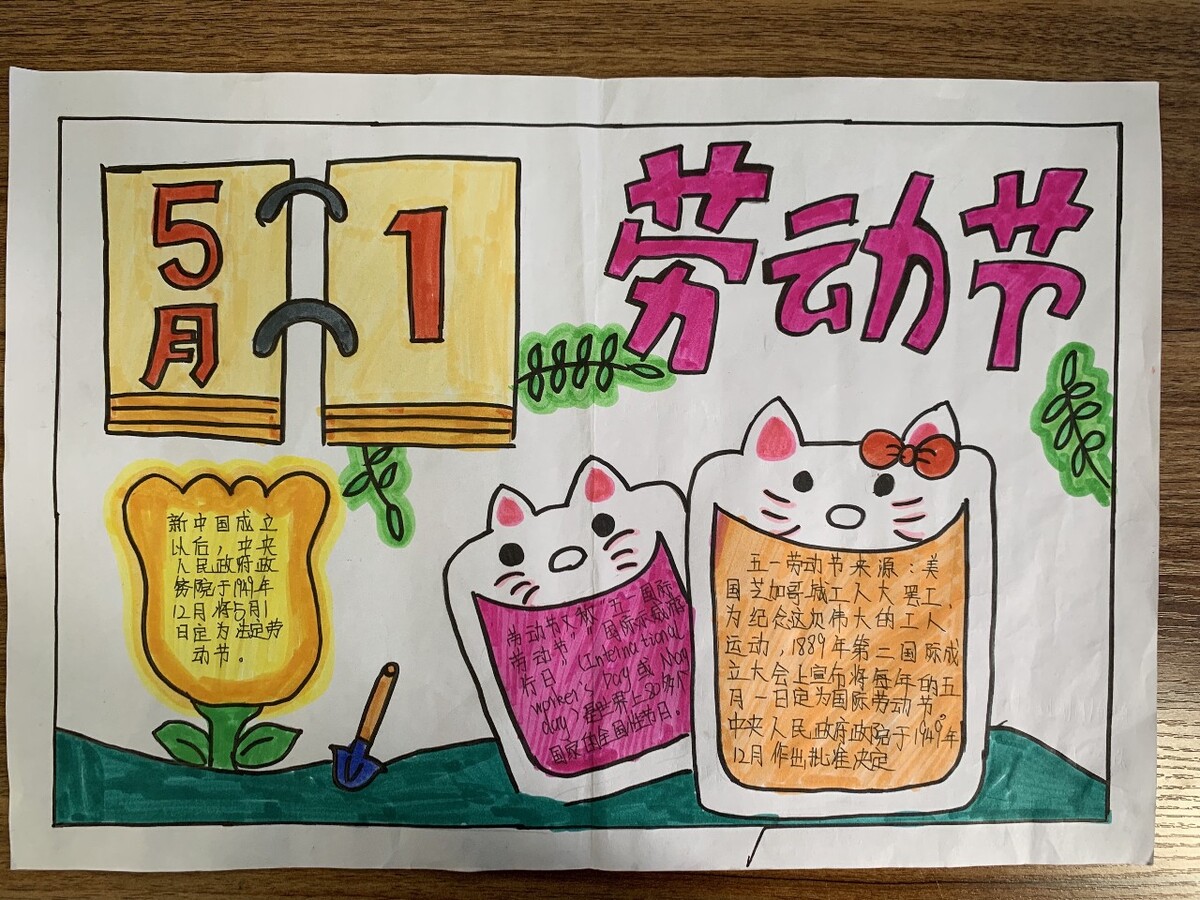 5月
1
劳动节
新中国成立
以后，中央
人民政府政
务院于1949年
12月将5月1
日定为法定劳
动节。
劳动节又称"五一国际
劳动节""国际示威游
行日"(International
worker's Day或May
day)是世界上80多个
国家的全国性节日。
五一劳动节来源：美
国芝加哥城工人大罢工，
为纪念这次伟大的工人
运动，1889年第二国际成
立大会上宣布将每年的五
月一日定为国际劳动节。
中央人民政府政院于1949年
12月作出批准决定